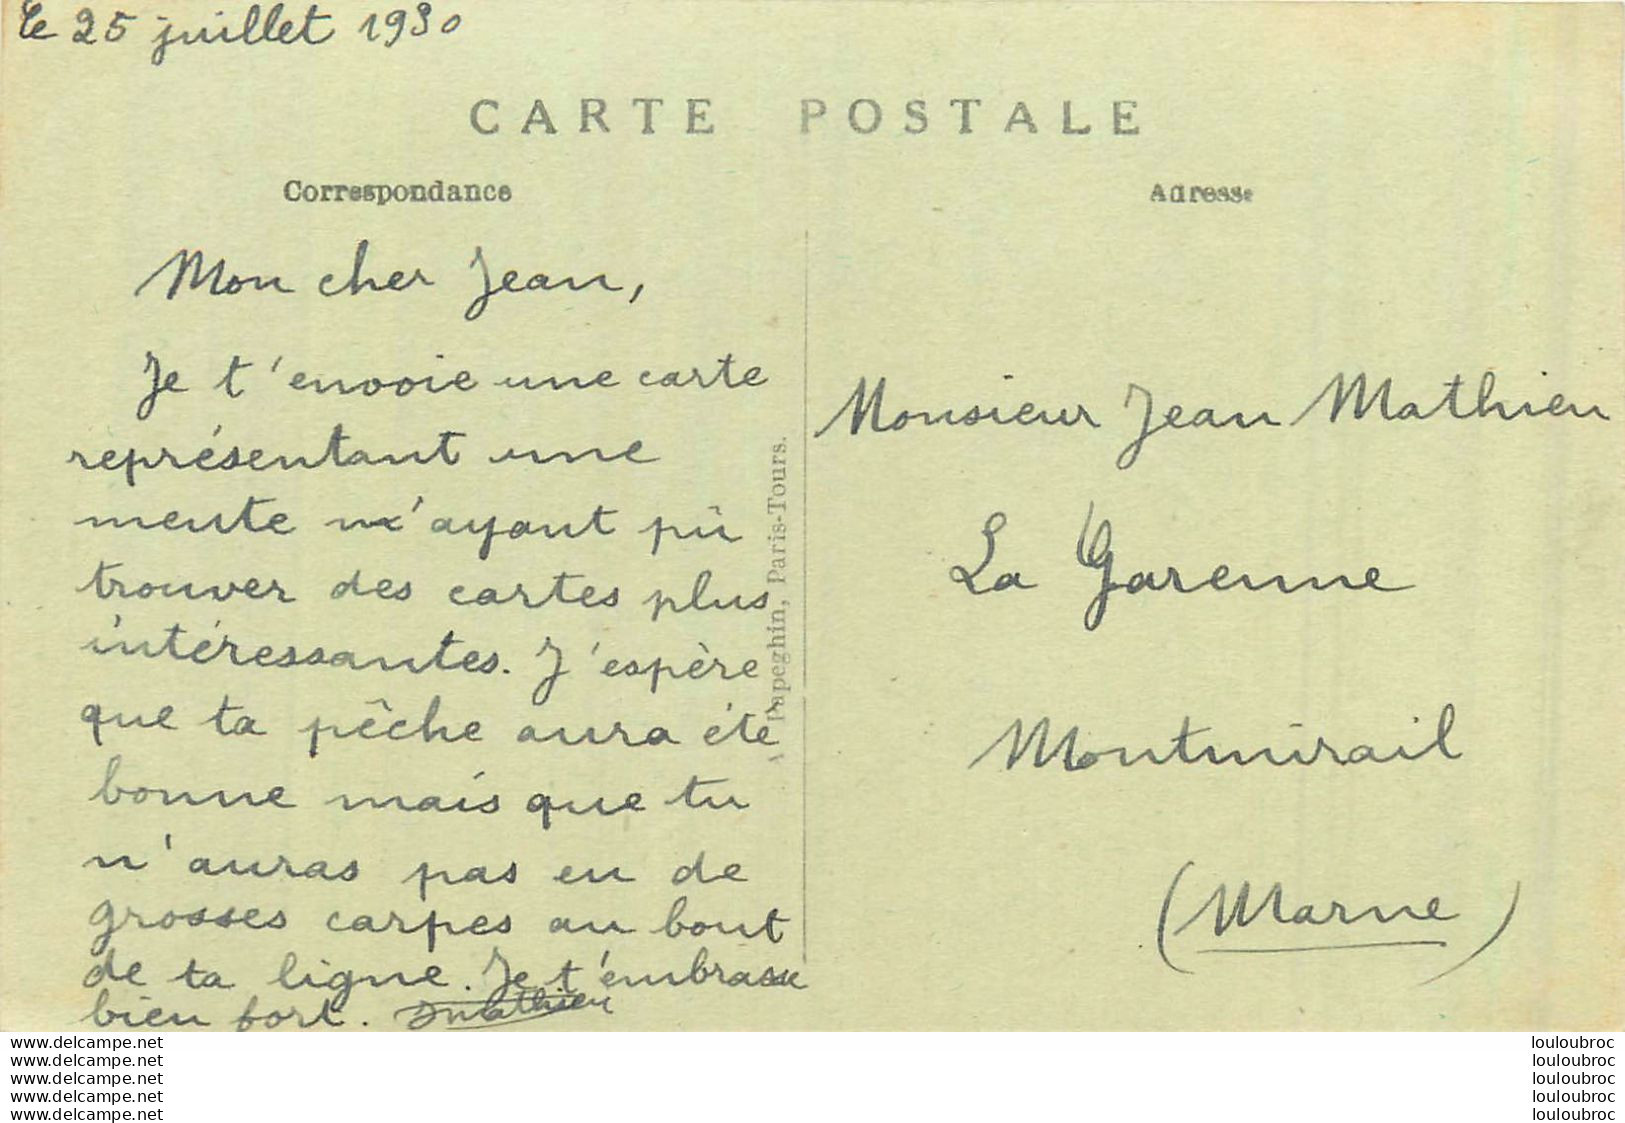 le 25 juillet 1930
CARTE POSTALE
Correspondance
Adresse
Mon cher Jean,
Je t'envoie une carte
représentant une
meute n'ayant pû
trouver des cartes plus
intéressantes. J'espère
que ta pêche aura été
bonne mais que tu
n'auras pas eu de
grosses carpes au bout
de ta ligne. Je t'embrasse
bien fort. Mathieu
A. Papeghin, Paris-Tours.
Monsieur Jean Mathieu
La Garenne
Montmirail
(Marne)
www.delcampe.net
www.delcampe.net
www.delcampe.net
www.delcampe.net
www.delcampe.net
louloubroc
louloubroc
louloubroc
louloubroc
louloubroc